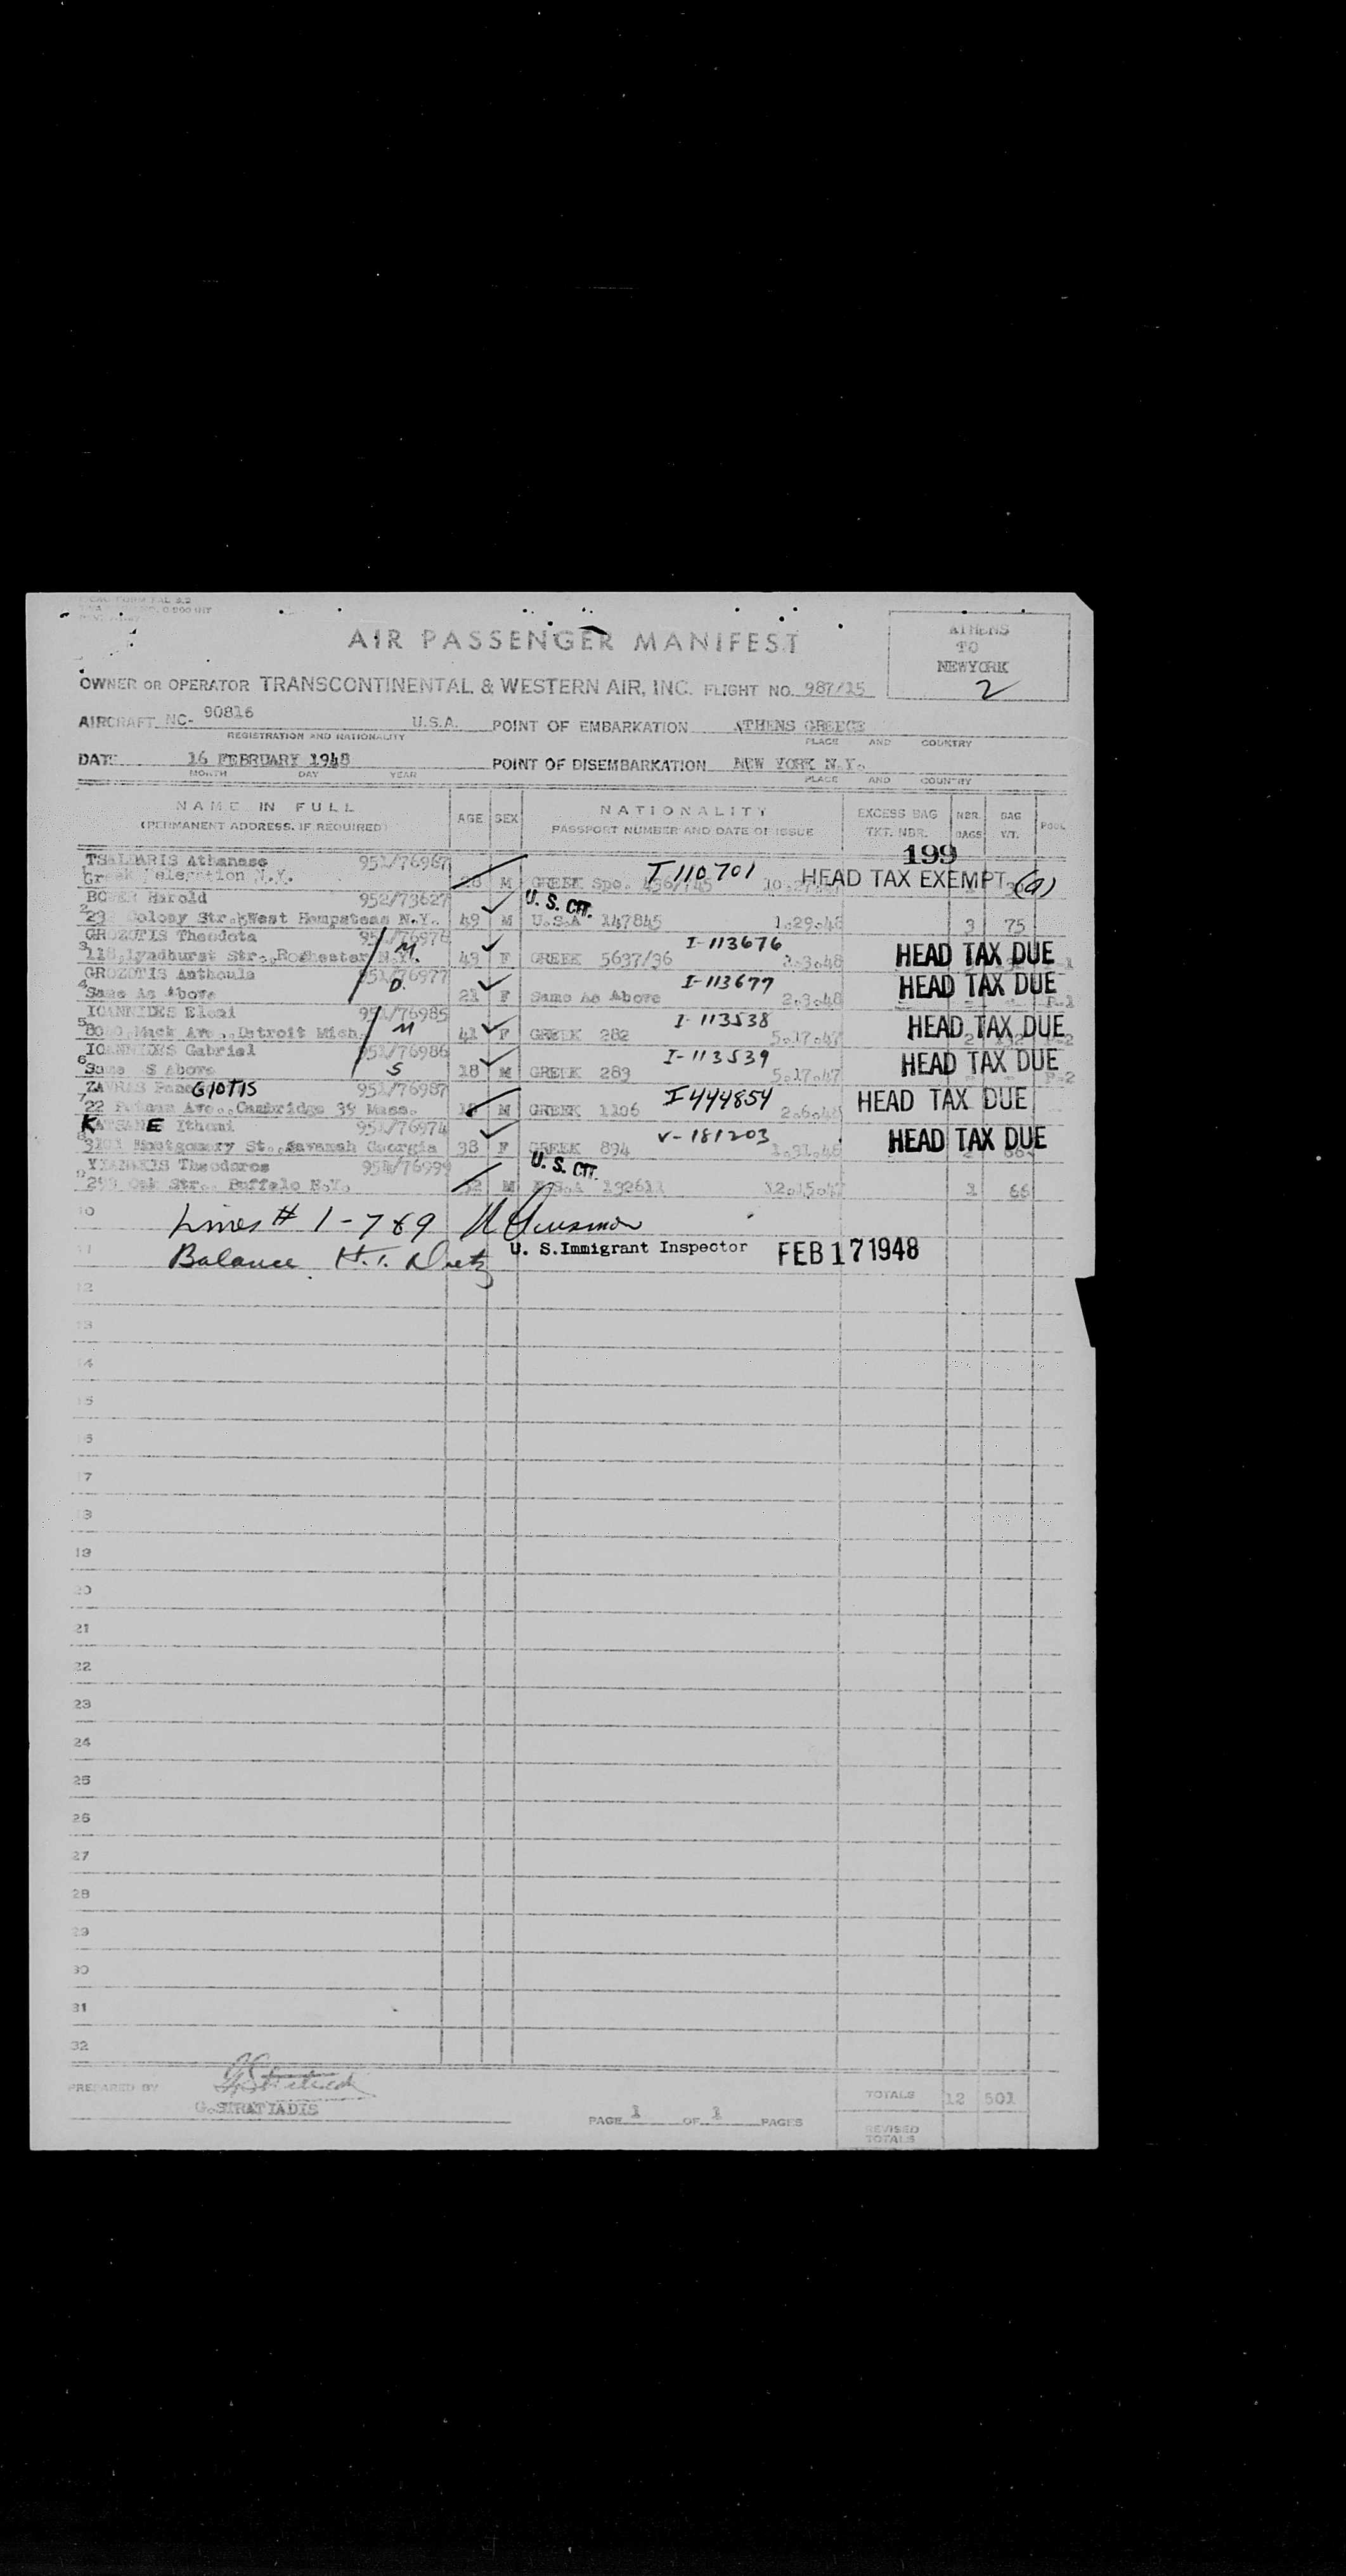 AIR PASSENGER MANIFEST
ATHENS
TO
NEWYORK
2
OWNER OR OPERATOR TRANSCONTINENTAL & WESTERN AIR, INC. FLIGHT NO. 987/15
AIRCRAFT NC- 90816 U.S.A. POINT OF EMBARKATION ATHENS GREECE
REGISTRATION AND NATIONALITY PLACE AND COUNTRY
DATE 16 FEBRUARY 1948 POINT OF DISEMBARKATION NEW YORK N.Y.
MONTH DAY YEAR PLACE AND COUNTRY
NAME IN FULL AGE SEX NATIONALITY EXCESS BAG NBR. BAG POOL
(PERMANENT ADDRESS, IF REQUIRED) PASSPORT NUMBER AND DATE OF ISSUE TKT. NBR. BAGS WT.
199
TSALDARIS Athanase 951/76967
Greek N.Y. M GREEK Spe. I 110701 HEAD TAX EXEMPT (a)
Harold 952/73627 U.S. CIT.
2 Colony Str. West Hempstead N.Y. 49 M U.S.A 147845 1.29.48 3 75
GROZOTIS Theodota M I-113676
3 118, Lyndhurst Str., Rochester N.Y. 43 F GREEK 5637/36 2.3.48 HEAD TAX DUE
GROZOTIS Anthoula 951/76977 D. I-113677
4 Same As Above 21 F Same As Above 2.3.48 HEAD TAX DUE P-1
IOANNIDES Eleni 951/76985 M I-113538
5 Mack Ave., Detroit Mich. 41 F GREEK 282 5.17.47 HEAD TAX DUE
IOANNIDES Gabriel 951/76986 S I-113539
6 Same As Above 18 M GREEK 283 5.17.47 HEAD TAX DUE P-2
ZAVRAS GIOTIS 951/76987 I 444854
7 22 Putnam Ave., Cambridge 39 Mass. M GREEK 1106 2.6.48 HEAD TAX DUE
KATSANE Ithomi 951/76974 V-181203
8 Montgomery St., Savannah Georgia 38 F GREEK 894 1.31.48 HEAD TAX DUE
Theodoros 951/76999 U.S. CIT.
9 Oak Str. Buffalo N.Y. M U.S.A 192611 12.15.47 1 66
10 Lines # 1-7 & 9
11 Balance H. T. Dietz U. S. Immigrant Inspector FEB 17 1948
12
13
14
15
16
17
18
19
20
21
22
23
24
25
26
27
28
29
30
31
32
PREPARED BY
G. STRATIADIS
PAGE 1 OF 1 PAGES
TOTALS 12 501
REVISED
TOTALS